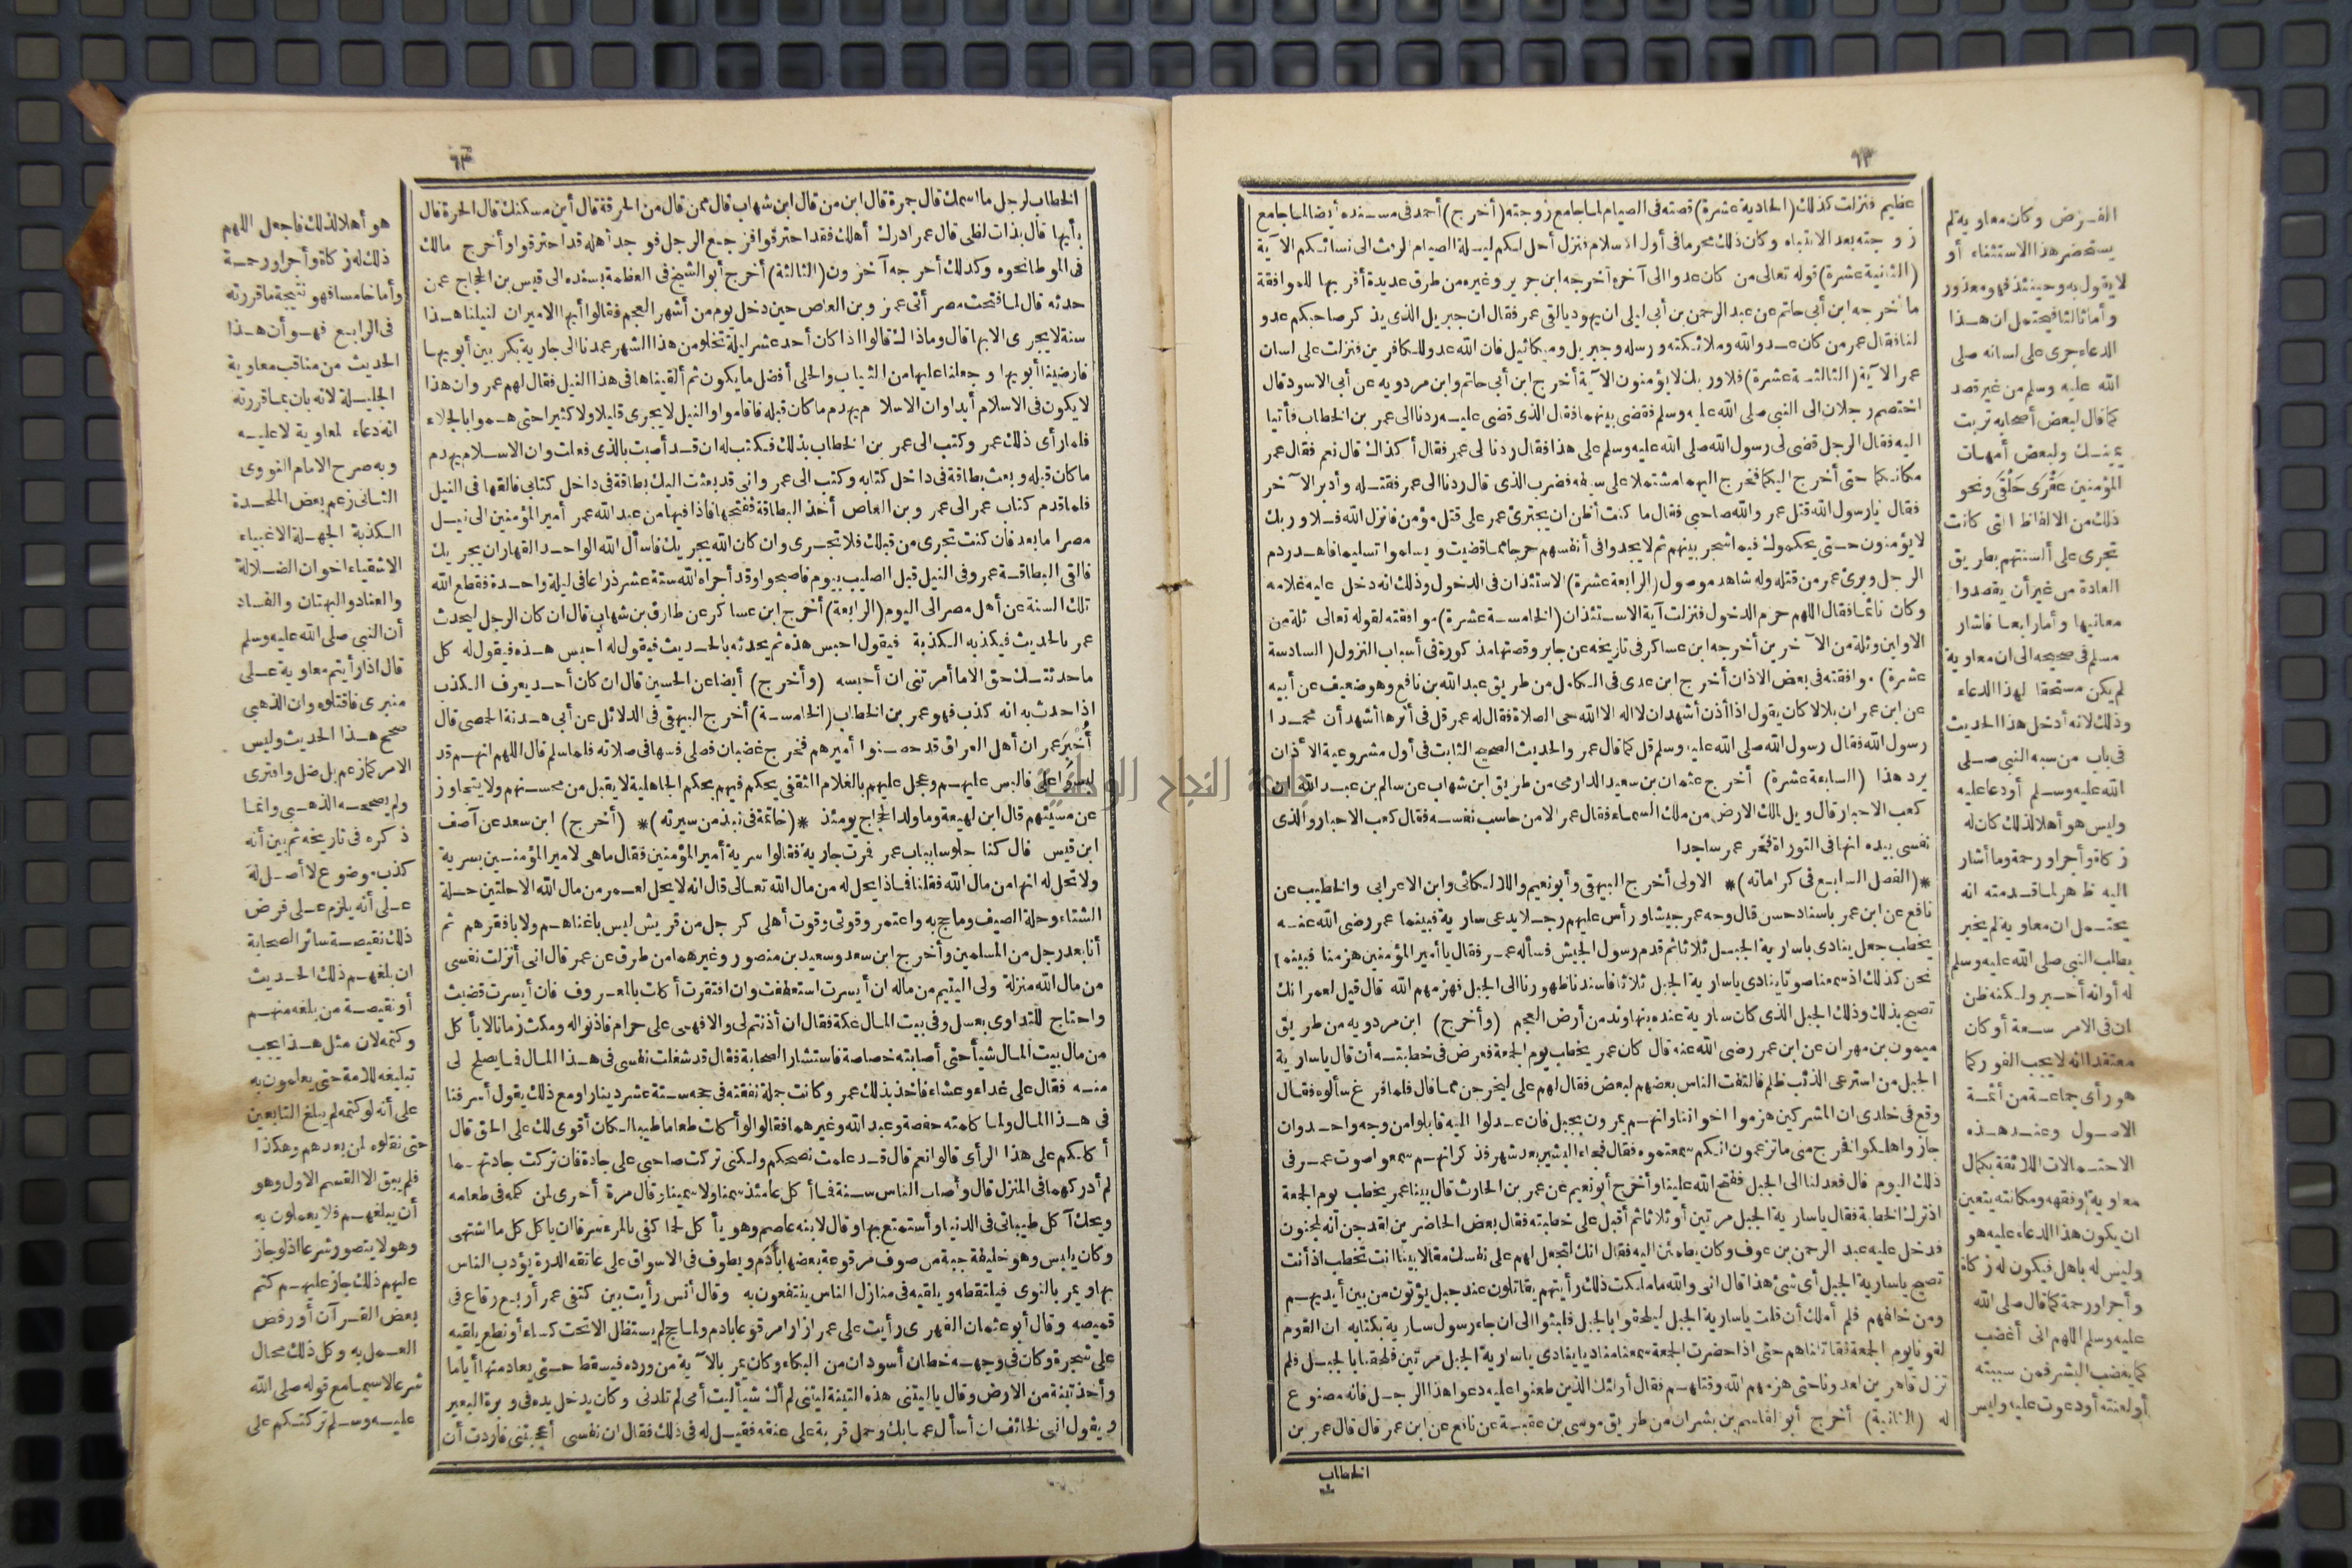 ٦٢
عظيم فنزلت كذلك (الحادية عشرة) قصته فى الصيام لما جامع زوجته (أخرج) أحمد فى مسنده أيضا لما جامع
زوجته بعد الانتباه وكان ذلك محرما فى أول الاسلام فنزل أحل لكم ليلة الصيام الرفث الى نسائكم الآية
(الثانية عشرة) قوله تعالى من كان عدوا الى آخره أخرجه ابن جرير وغيره من طرق عديدة أقربها للموافقة
ما أخرجه ابن أبى حاتم عن عبد الرحمن بن أبى ليلى ان يهوديا لقى عمر فقال ان جبريل الذى يذكر صاحبكم عدو
لنا فقال عمر من كان عدوا لله وملائكته ورسله وجبريل وميكائيل فان الله عدو للكافرين فنزلت على لسان
عمر الآية (الثالثة عشرة) فلا وربك لا يؤمنون الآية أخرج ابن أبى حاتم وابن مردويه عن أبى الاسود قال
اختصم رجلان الى النبى صلى الله عليه وسلم فقضى بينهما فقال الذى قضى عليه ردنا الى عمر بن الخطاب فأتيا
اليه فقال الرجل قضى لى رسول الله صلى الله عليه وسلم على هذا فقال ردنا الى عمر فقال أكذاك قال نعم فقال عمر
مكانكما حتى أخرج اليكما فخرج اليهما مشتملا على سيفه فضرب الذى قال ردنا الى عمر فقتله وأدبر الآخر
فقال يا رسول الله قتل عمر والله صاحبى فقال ما كنت أظن ان يجترئ عمر على قتل مؤمن فانزل الله فلا وربك
لا يؤمنون حتى يحكموك فيما شجر بينهم ثم لا يجدوا فى أنفسهم حرجا مما قضيت ويسلموا تسليما فاهدر دم
الرجل وبرئ عمر من قتله وله شاهد موصول (الرابعة عشرة) الاستئذان فى الدخول وذلك انه دخل عليه غلامه
وكان نائما فقال اللهم حرم الدخول فنزلت آية الاستئذان (الخامسة عشرة) موافقته لقوله تعالى ثلة من
الاولين وثلة من الآخرين أخرجه ابن عساكر فى تاريخه عن جابر وقصتها مذكورة فى أسباب النزول (السادسة
عشرة) موافقته فى بعض الاذان أخرج ابن عدى فى الكامل من طريق عبد الله بن نافع وهو ضعيف عن أبيه
عن ابن عمر ان بلالا كان يقول اذا أذن أشهد ان لا اله الا الله حى الصلاة فقال له عمر قل فى أثرها أشهد أن محمدا
رسول الله فقال رسول الله صلى الله عليه وسلم قل كما قال عمر والحديث الصحيح الثابت فى أول مشروعية الأذان
يرد هذا (السابعة عشرة) أخرج عثمان بن سعيد الدارمى من طريق ابن شهاب عن سالم بن عبد الله ان
كعب الاحبار قال ويل لملك الارض من ملك السماء فقال عمر الا من حاسب نفسه فقال كعب الاحبار والذى
نفسى بيده انها فى التوراة فخر عمر ساجدا
*(الفصل السابع فى كراماته)* الاولى أخرج البيهقى وأبو نعيم واللالكائى وابن الاعرابى والخطيب عن
نافع عن ابن عمر باسناد حسن قال وجه عمر جيشا ورأس عليهم رجلا يدعى سارية فبينما عمر رضى الله عنه
يخطب جعل ينادى يا سارية الجبل ثلاثا ثم قدم رسول الجيش فسأله عمر فقال يا أمير المؤمنين هزمنا فبينما
نحن كذلك اذ سمعنا صوتا ينادى يا سارية الجبل ثلاثا فاسندنا ظهورنا الى الجبل فهزمهم الله قال قيل لعمر انك
تصيح بذلك وذلك الجبل الذى كان سارية عنده بنهاوند من أرض العجم (وأخرج) ابن مردويه من طريق
ميمون بن مهران عن ابن عمر رضى الله عنه قال كان عمر يخطب يوم الجمعة فعرض فى خطبته أن قال يا سارية
الجبل من استرعى الذئب ظلم فالتفت الناس بعضهم لبعض فقال لهم على ليخرجن مما قال فلما فرغ سألوه فقال
وقع فى خلدى ان المشركين هزموا اخواننا وانهم يمرون بجبل فان عدلوا اليه قاتلوا من وجه واحد وان
جازوا هلكوا فخرج منى ما تزعمون انكم سمعتموه فقال فجاء البشير بعد شهر فذكر انهم سمعوا صوت عمر فى
ذلك اليوم قال فعدلنا الى الجبل ففتح الله علينا وأخرج أبو نعيم عن عمر بن الحارث قال بينا عمر يخطب يوم الجمعة
اذ ترك الخطبة فقال يا سارية الجبل مرتين أو ثلاثا ثم أقبل على خطبته فقال بعض الحاضرين لقد جن انه لمجنون
فدخل عليه عبد الرحمن بن عوف وكان يطمئن اليه فقال انك لتجعل لهم على نفسك مقالا بينا انت تخطب اذ أنت
تصيح يا سارية الجبل أى شئ هذا قال انى والله ما ملكت ذلك رأيتهم يقاتلون عند جبل يؤتون من بين أيديهم
ومن خلفهم فلم أملك أن قلت يا سارية الجبل ليلحقوا بالجبل فلبثوا الى ان جاء رسول سارية بكتابه ان القوم
لقونا يوم الجمعة فقاتلناهم حتى اذا حضرت الجمعة سمعنا مناديا ينادى يا سارية الجبل مرتين فلحقنا بالجبل فلم
نزل قاهرين لعدونا حتى هزمهم الله وقتلهم فقال أولئك الذين طعنوا عليه دعوا هذا الرجل فانه مصنوع
له (الثانية) أخرج أبو القاسم بن بشران من طريق موسى بن عقبة عن نافع عن ابن عمر قال قال عمر بن
الخطاب
الفرض وكان معاوية لم
يستحضر هذا الاستثناء أو
لا يقول به وحينئذ فهو معذور
وأما ثالثا فيحتمل ان هذا
الدعاء جرى على لسانه صلى
الله عليه وسلم من غير قصد
كما قال لبعض أصحابه تربت
يمينك ولبعض أمهات
المؤمنين عقرى حلقى ونحو
ذلك من الالفاظ التى كانت
تجرى على ألسنتهم بطريق
العادة من غير أن يقصدوا
معانيها وأما رابعا فاشار
مسلم فى صحيحه الى ان معاوية
لم يكن مستحقا لهذا الدعاء
وذلك لانه أدخل هذا الحديث
فى باب من سبه النبى صلى
الله عليه وسلم أو دعا عليه
وليس هو أهلا لذلك كان له
زكاة وأجرا ورحمة وما أشار
اليه ظاهر لما قدمته انه
يحتمل ان معاوية لم يخبر
بطلب النبى صلى الله عليه وسلم
له أو انه أخبر ولكنه ظن
ان فى الامر سعة أو كان
معتقدا انه لا يجب الفور كما
هو رأى جماعة من أئمة
الاصول وعند هذه
الاحتمالات اللائقة بكمال
معاوية وفقهه ومكانته يتعين
ان يكون هذا الدعاء عليه هو
وليس له باهل فيكون له زكاة
وأجرا ورحمة كما قال صلى الله
عليه وسلم اللهم انى أغضب
كما يغضب البشر فمن سببته
أو لعنته أو دعوت عليه وليس
٦٣
الخطاب لرجل ما اسمك قال جمرة قال ابن من قال ابن شهاب قال ممن قال من الحرقة قال أين مسكنك قال الحرة قال
بأيها قال بذات لظى قال عمر ادرك أهلك فقد احترقوا فرجع الرجل فوجد أهله قد احترقوا وأخرج مالك
فى الموطا نحوه وكذلك أخرجه آخرون (الثالثة) أخرج أبو الشيخ فى العظمة بسنده الى قيس بن الحجاج عمن
حدثه قال لما فتحت مصر أتى عمرو بن العاص حين دخل يوم من أشهر العجم فقالوا أيها الامير ان لنيلنا هذا
سنة لا يجرى الا بها قال وما ذاك قالوا اذا كان أحد عشر ليلة تخلو من هذا الشهر عمدنا الى جارية بكر بين أبويها
فارضينا أبويها وجعلنا عليها من الثياب والحلى أفضل ما يكون ثم ألقيناها فى هذا النيل فقال لهم عمرو ان هذا
لا يكون فى الاسلام أبدا وان الاسلام يهدم ما كان قبله فاقاموا والنيل لا يجرى قليلا ولا كثيرا حتى هموا بالجلاء
فلما رأى ذلك عمرو كتب الى عمر بن الخطاب بذلك فكتب له ان قد أصبت بالذى فعلت وان الاسلام يهدم
ما كان قبله وبعث بطاقة فى داخل كتابه وكتب الى عمرو انى قد بعثت اليك بطاقة فى داخل كتابى فالقها فى النيل
فلما قدم كتاب عمر الى عمرو بن العاص أخذ البطاقة ففتحها فاذا فيها من عبد الله عمر أمير المؤمنين الى نيل
مصر اما بعد فان كنت تجرى من قبلك فلا تجرى وان كان الله يجريك فاسأل الله الواحد القهار ان يجريك
فالقى البطاقة عمرو فى النيل قبل الصليب بيوم فاصبحوا وقد أجراه الله ستة عشر ذراعا فى ليلة واحدة فقطع الله
تلك السنة عن أهل مصر الى اليوم (الرابعة) أخرج ابن عساكر عن طارق بن شهاب قال ان كان الرجل ليحدث
عمر بالحديث فيكذبه الكذبة فيقول احبس هذه ثم يحدثه بالحديث فيقول له احبس هذه فيقول له كل
ما حدثتك حق الا ما أمرتنى ان أحبسه (وأخرج) أيضا عن الحسين قال ان كان أحد يعرف الكذب
اذا حدث به انه كذب فهو عمر بن الخطاب (الخامسة) أخرج البيهقى فى الدلائل عن أبى هدنة الحصى قال
أخبر عمر ان أهل العراق قد حصنوا أميرهم فخرج غضبان فصلى فسها فى صلاته فلما سلم قال اللهم انهم قد
لبسوا على فالبس عليهم وعجل عليهم بالغلام الثقفى يحكم فيهم بحكم الجاهلية لا يقبل من محسنهم ولا يتجاوز
عن مسيئهم قال ابن لهيعة وما ولد الحجاج يومئذ *(خاتمة فى نبذ من سيرته)* (أخرج) ابن سعد عن آصف
ابن قيس قال كنا جلوسا بباب عمر فمرت جارية فقالوا سرية أمير المؤمنين فقال ما هى لامير المؤمنين بسرية
ولا تحل له انها من مال الله فقلنا فماذا يحل له من مال الله تعالى قال انه لا يحل لعمر من مال الله الا حلتين حلة
الشتاء وحلة الصيف وما حج به واعتمر وقوتى وقوت أهلى كرجل من قريش ليس باغناهم ولا بافقرهم ثم
أنا بعد رجل من المسلمين وأخرج ابن سعد وسعيد بن منصور وغيرهما من طرق عن عمر قال انى أنزلت نفسى
من مال الله منزلة ولى اليتيم من ماله ان أيسرت استعففت وان افتقرت أكلت بالمعروف فان أيسرت قضيت
واحتاج للتداوى بعسل وفى بيت المال عكة فقال ان أذنتم لى والا فهى على حرام فاذنوا له ومكث زمانا لا يأكل
من مال بيت المال شيأ حتى أصابته خصاصة فاستشار الصحابة فقال قد شغلت نفسى فى هذا المال فما يصلح لى
منه فقال على غداء وعشاء فاخذ بذلك عمر وكانت جملة نفقته فى حجه ستة عشر دينارا ومع ذلك يقول أسرفنا
فى هذا المال ولما كلمته حفصة وعبد الله وغيرهما فقالوا لو أكلت طعاما طيبا لكان أقوى لك على الحق قال
أكلكم على هذا الرأى قالوا نعم قال قد علمت نصحكم ولكنى تركت صاحبى على جادة فان تركت جادتهما
لم أدركهما فى المنزل قال وأصاب الناس سنة فما أكل عامئذ سمنا ولا سمينا وقال مرة أخرى لمن كلمه فى طعامه
ويحك آكل طيباتى فى الدنيا وأستمتع بها وقال لابنه عاصم وهو يأكل لحما كفى بالمرء سرفا ان ياكل كل ما اشتهى
وكان يلبس وهو خليفة جبة من صوف مرقوعة بعضها بأدم ويطوف فى الاسواق على عاتقه الدرة يؤدب الناس
بها ويمر بالنوى فيلتقطه ويلقيه فى منازل الناس ينتفعون به وقال أنس رأيت بين كتفى عمر أربع رقاع فى
قميصه وقال أبو عثمان الفهرى رأيت على عمر ازارا مرقوعا بادم ولما حج لم يستظل الا تحت كساء أو نطع يلقيه
على شجرة وكان فى وجهه خطان أسودان من البكاء وكان يمر بالآية من ورده فيسقط حتى يعاد منها أياما
وأخذ تبنة من الارض وقال يا ليتنى هذه التبنة ليتنى لم أك شيأ ليت أمى لم تلدنى وكان يدخل يده فى وبرة البعير
ويقول انى لخائف ان أسأل عما بك وحمل قربة على عنقه فقيل له فى ذلك فقال ان نفسى أعجبتنى فاردت أن
هو أهلا لذلك فاجعل اللهم
ذلك له زكاة وأجرا ورحمة
وأما خامسا فهو نتيجة ما قررته
فى الرابع فهو أن هذا
الحديث من مناقب معاوية
الجليلة لانه بان بما قررته
انه دعاء لمعاوية لا عليه
وبه صرح الامام النووى
الثانى زعم بعض الملحدة
الكذبة الجهلة الاغبياء
الاشقياء اخوان الضلالة
والعناد والبهتان والفساد
أن النبى صلى الله عليه وسلم
قال اذا رأيتم معاوية على
منبرى فاقتلوه وان الذهبى
صحح هذا الحديث وليس
الامر كما زعم بل ضل وافترى
ولم يصححه الذهبى وانما
ذكره فى تاريخه ثم بين أنه
كذب موضوع لا أصل له
على أنه يلزم على فرض
ذلك نقيصة سائر الصحابة
ان بلغهم ذلك الحديث
أو نقيصة من بلغه منهم
وكتمه لان مثل هذا يجب
تبليغه للامة حتى يعملون به
على أنه لو كتمه لم يبلغ التابعين
حتى نقلوه لمن بعدهم وهكذا
فلم يبق الا القسم الاول وهو
أن يبلغهم فلا يعملون به
وهو لا يتصور شرعا اذ لو جاز
عليهم ذلك جاز عليهم كتم
بعض القرآن أو رفض
العمل به وكل ذلك محال
شرعا لا سيما مع قوله صلى الله
عليه وسلم تركتكم على
جامعة النجاح الوطنية